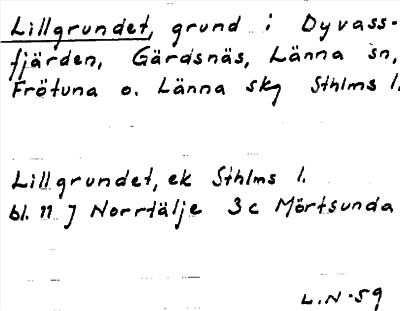 Lillgrundet, grund i Dyvass-
fjärden, Gärdsnäs, Länna sn,
Frötuna o. Länna skg Sthlms l.
Lillgrundet, ek Sthlms l.
bl. 11 J Norrtälje 3c Mörtsunda
L.N-59